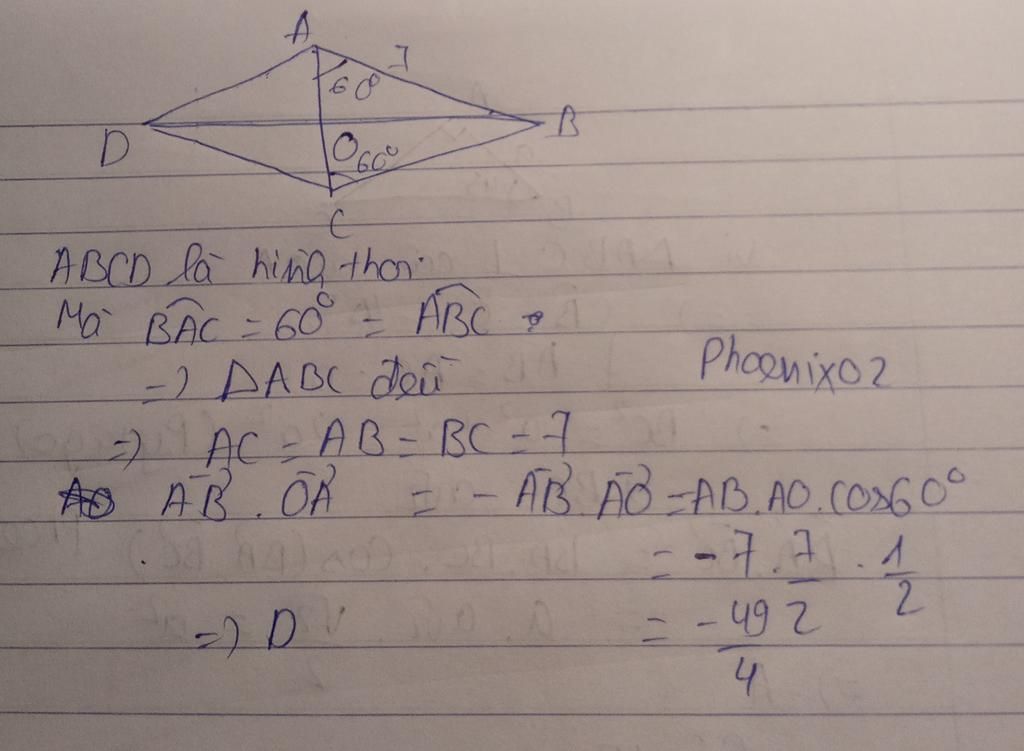 A
7
60°
D
B
O
60°
C
ABCD là hình thoi.
Mà BAC = 60° = ABC
=> ΔABC đều
Phoenix02
=> AC = AB = BC = 7
AB . OA = - AB . AO = AB . AO . cos60°
= -7 . 7/2 . 1/2
= -49/4
=> D